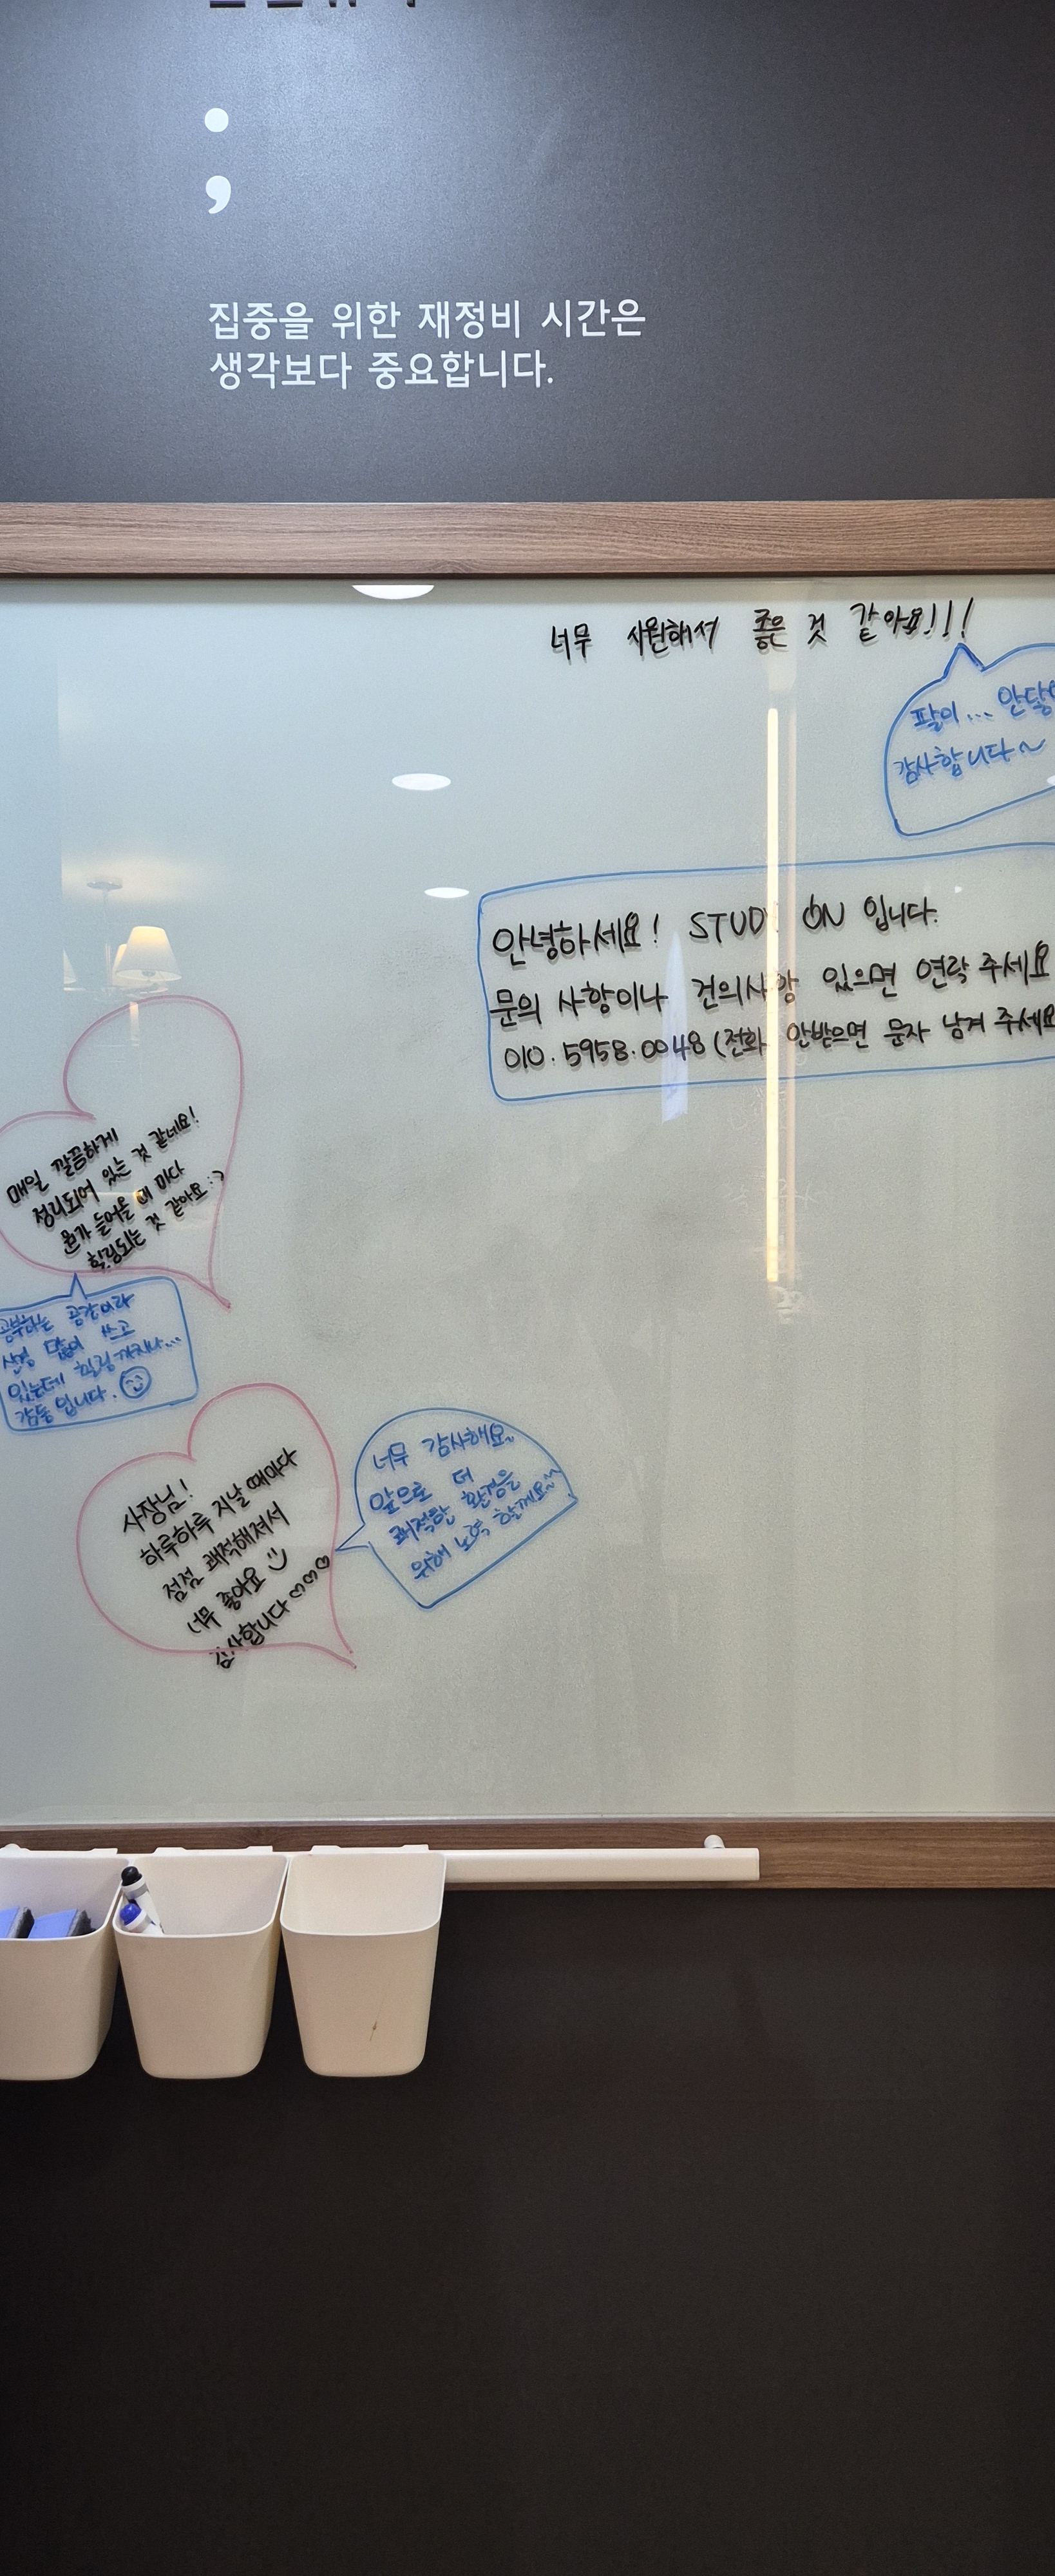 ;
집중을 위한 재정비 시간은
생각보다 중요합니다.
너무 시원해서 좋은 것 같아요!!!
팔이... 안닿
감사합니다~
안녕하세요! STUDY ON 입니다.
문의 사항이나 건의사항 있으면 연락 주세요
010.5958.0048 (전화 안받으면 문자 남겨 주세요
매일 깔끔하게
정리되어 있는 것 같네요!
뭔가 들어올 때 마다
힐링되는 것 같아요:)
공부하는 공간이라
신경 많이 쓰고
있는데 힐링까지나...
감동입니다.
사장님!
하루하루 지날 때마다
점점 쾌적해져서
너무 좋아요
감사합니다♡♡♡
너무 감사해요~
앞으로 더
쾌적한 환경을
위해 노력 할게요~~